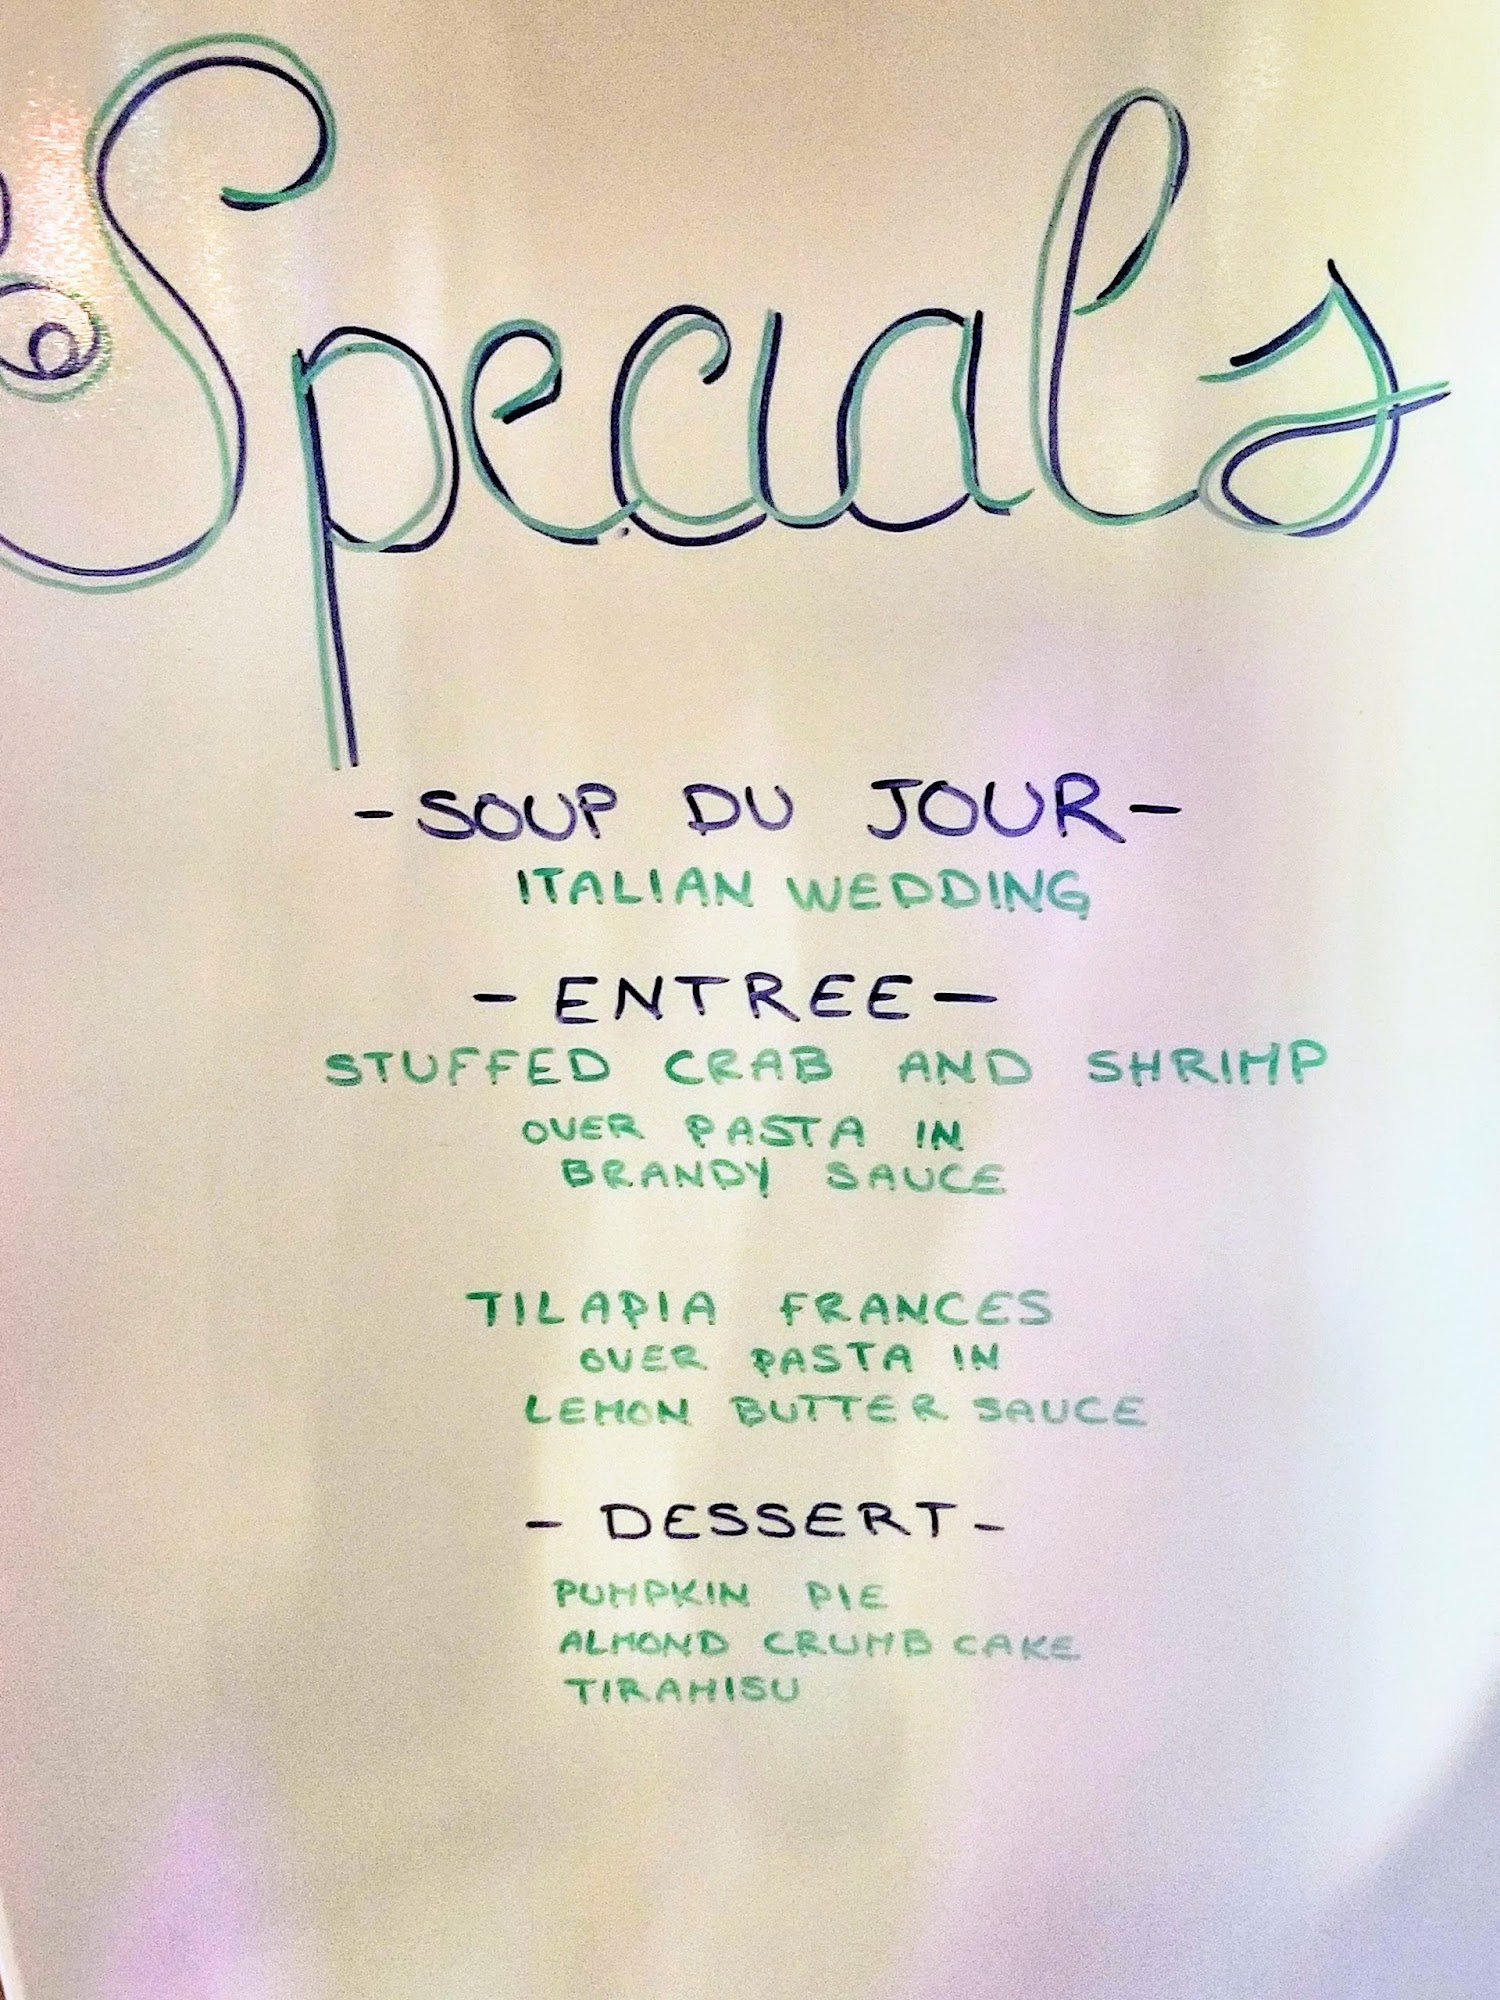 Specials
-SOUP DU JOUR-
ITALIAN WEDDING
- ENTREE -
STUFFED CRAB AND SHRIMP
OVER PASTA IN
BRANDY SAUCE
TILAPIA FRANCES
OVER PASTA IN
LEMON BUTTER SAUCE
- DESSERT -
PUMPKIN PIE
ALMOND CRUMB CAKE
TIRAMISU